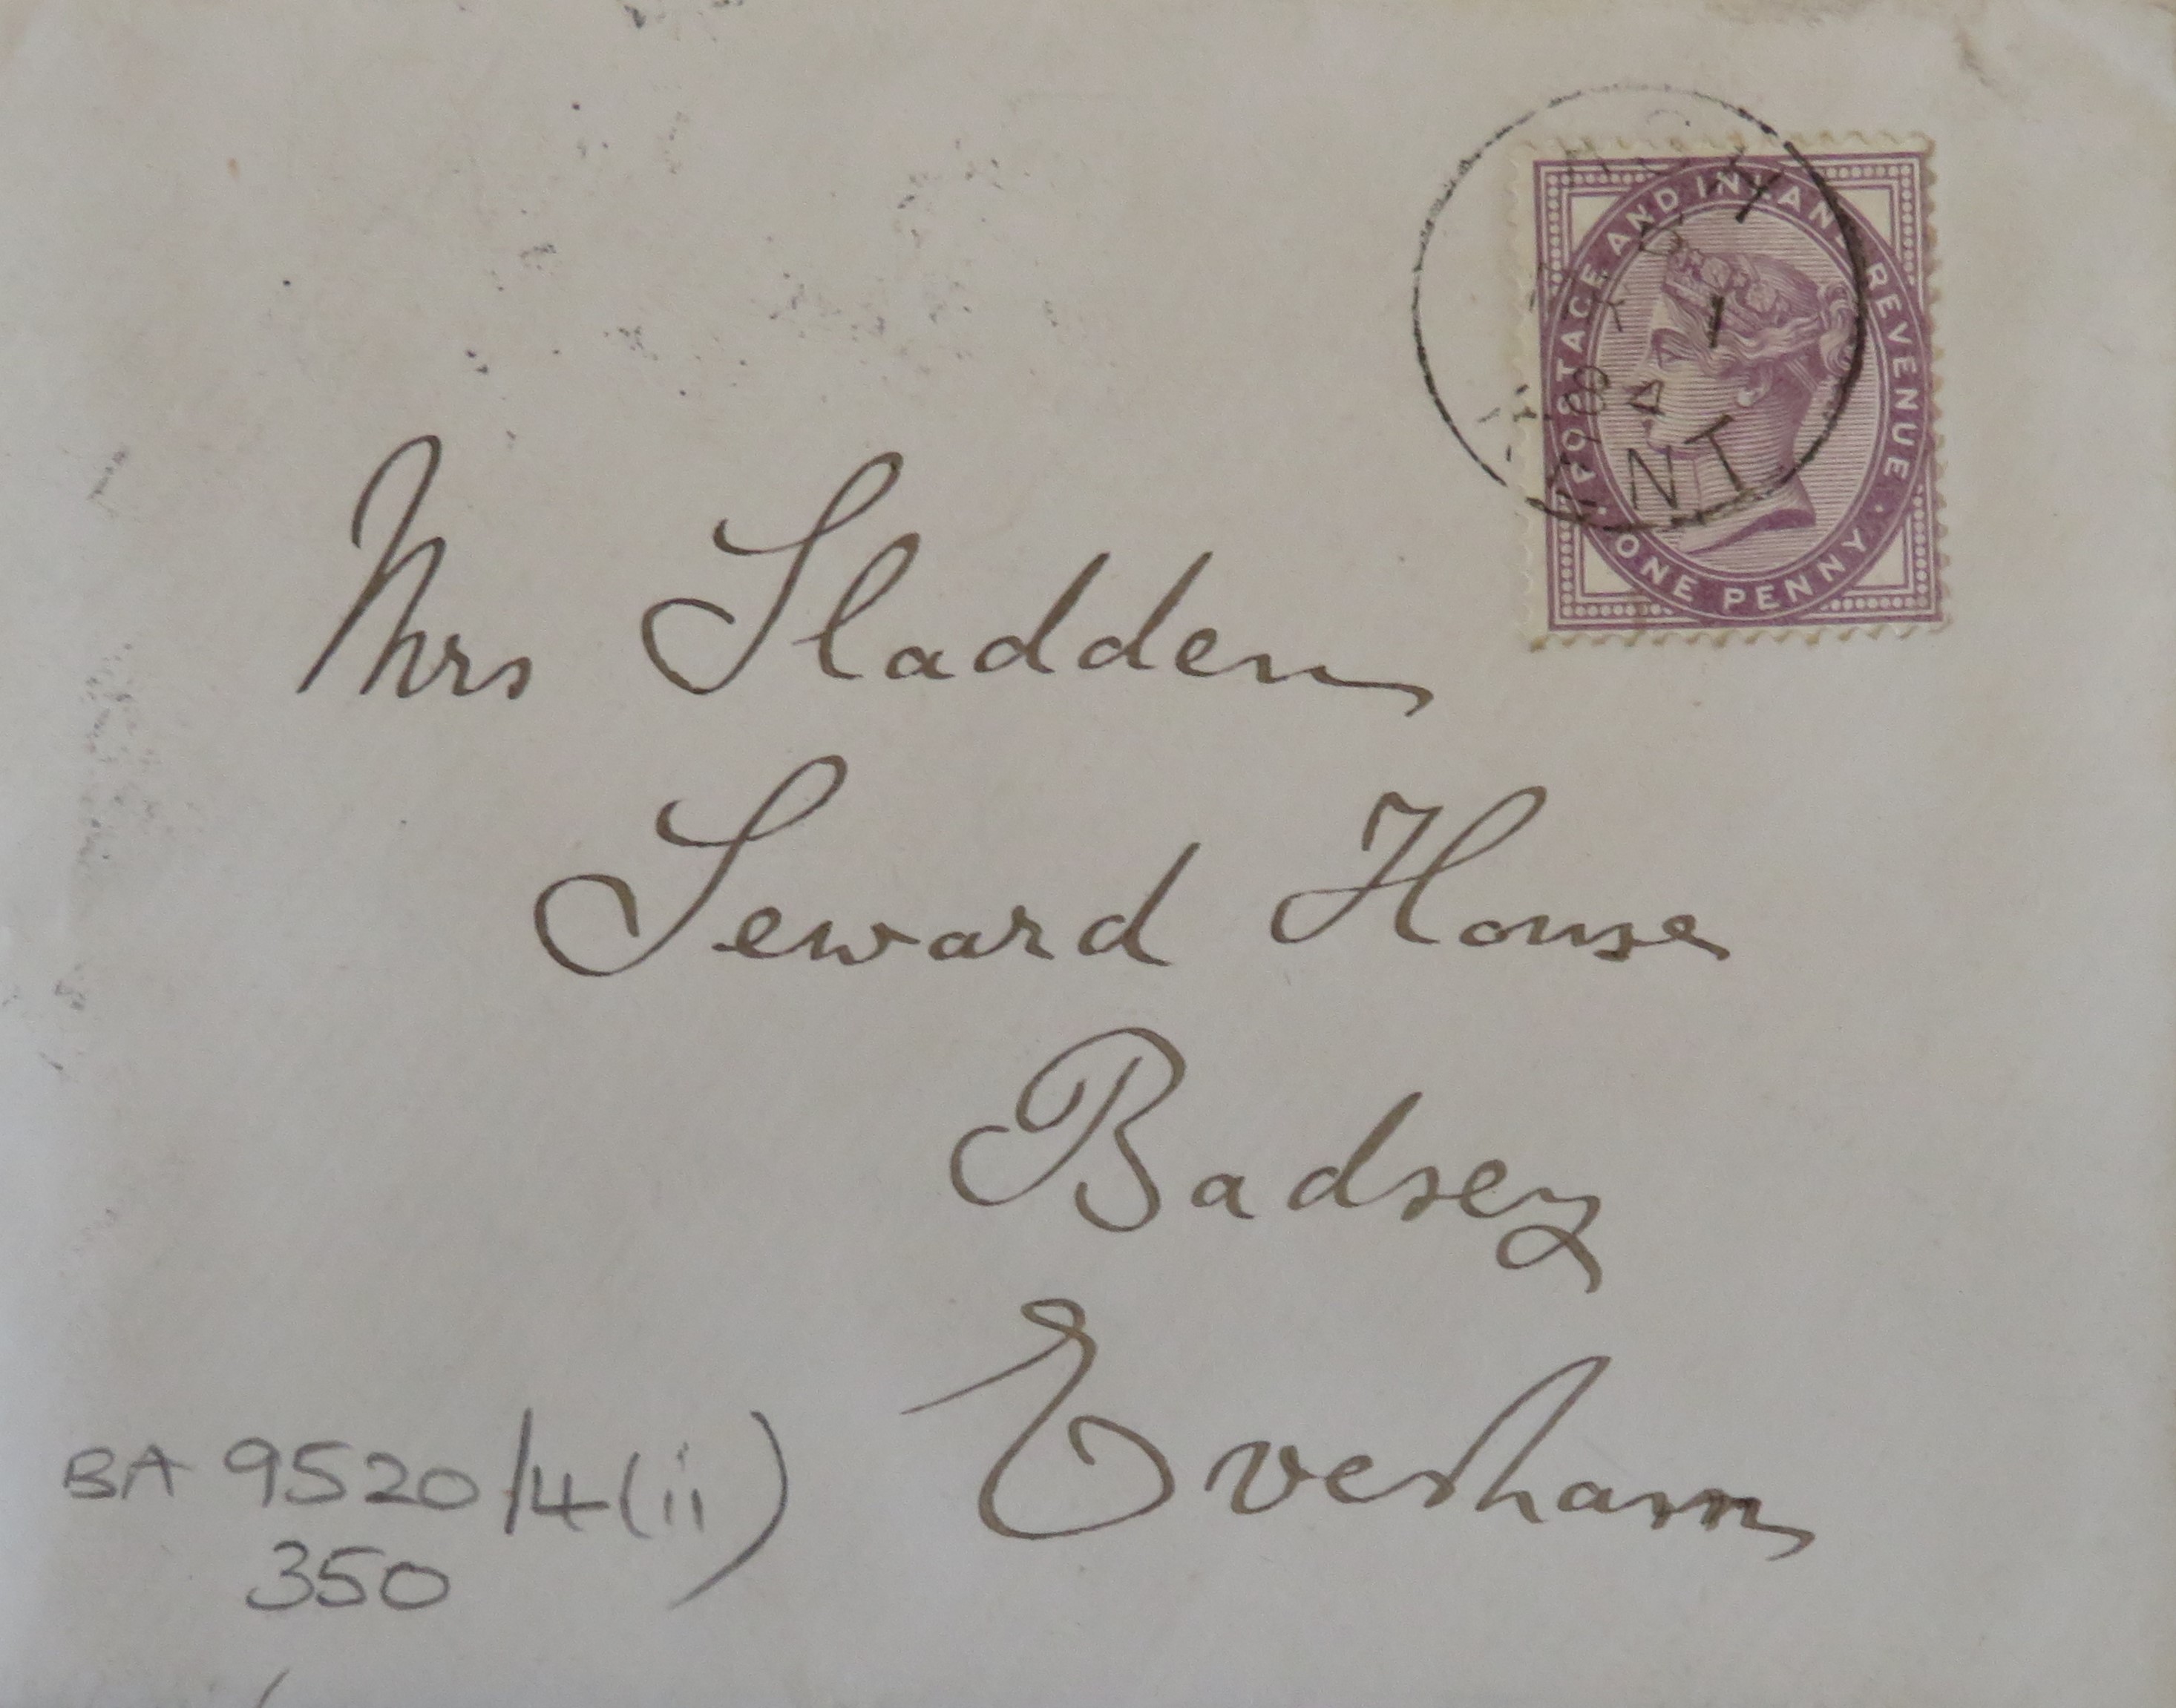 POSTAGE AND INLAND REVENUE
ONE PENNY
Mrs Sladden
Seward House
Badsey
Evesham
BA 9520/4(ii)
350